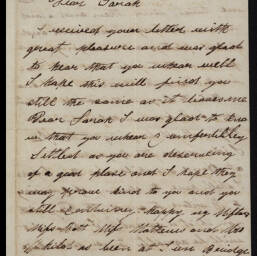 Dear Sarah
I received your letter with
great pleasure and was glad
to hear that you whear well
I hape this will find you
still the same as it leaves me
Dear Sarah I was glad to
in that you whear Comfortibley
Settled as you are deserving
of a good place and I hope they
may kind to you and you
still happy
Miss Mss and Mrs
as been at